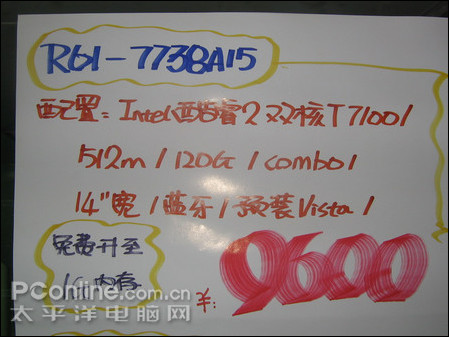 R61-7738A15
配置：Intel酷睿2双核T7100/
512m/120G/combo/
14"宽/蓝牙/预装Vista/
免费升至
1G内存
¥:9600
PConline.com.cn
太平洋电脑网